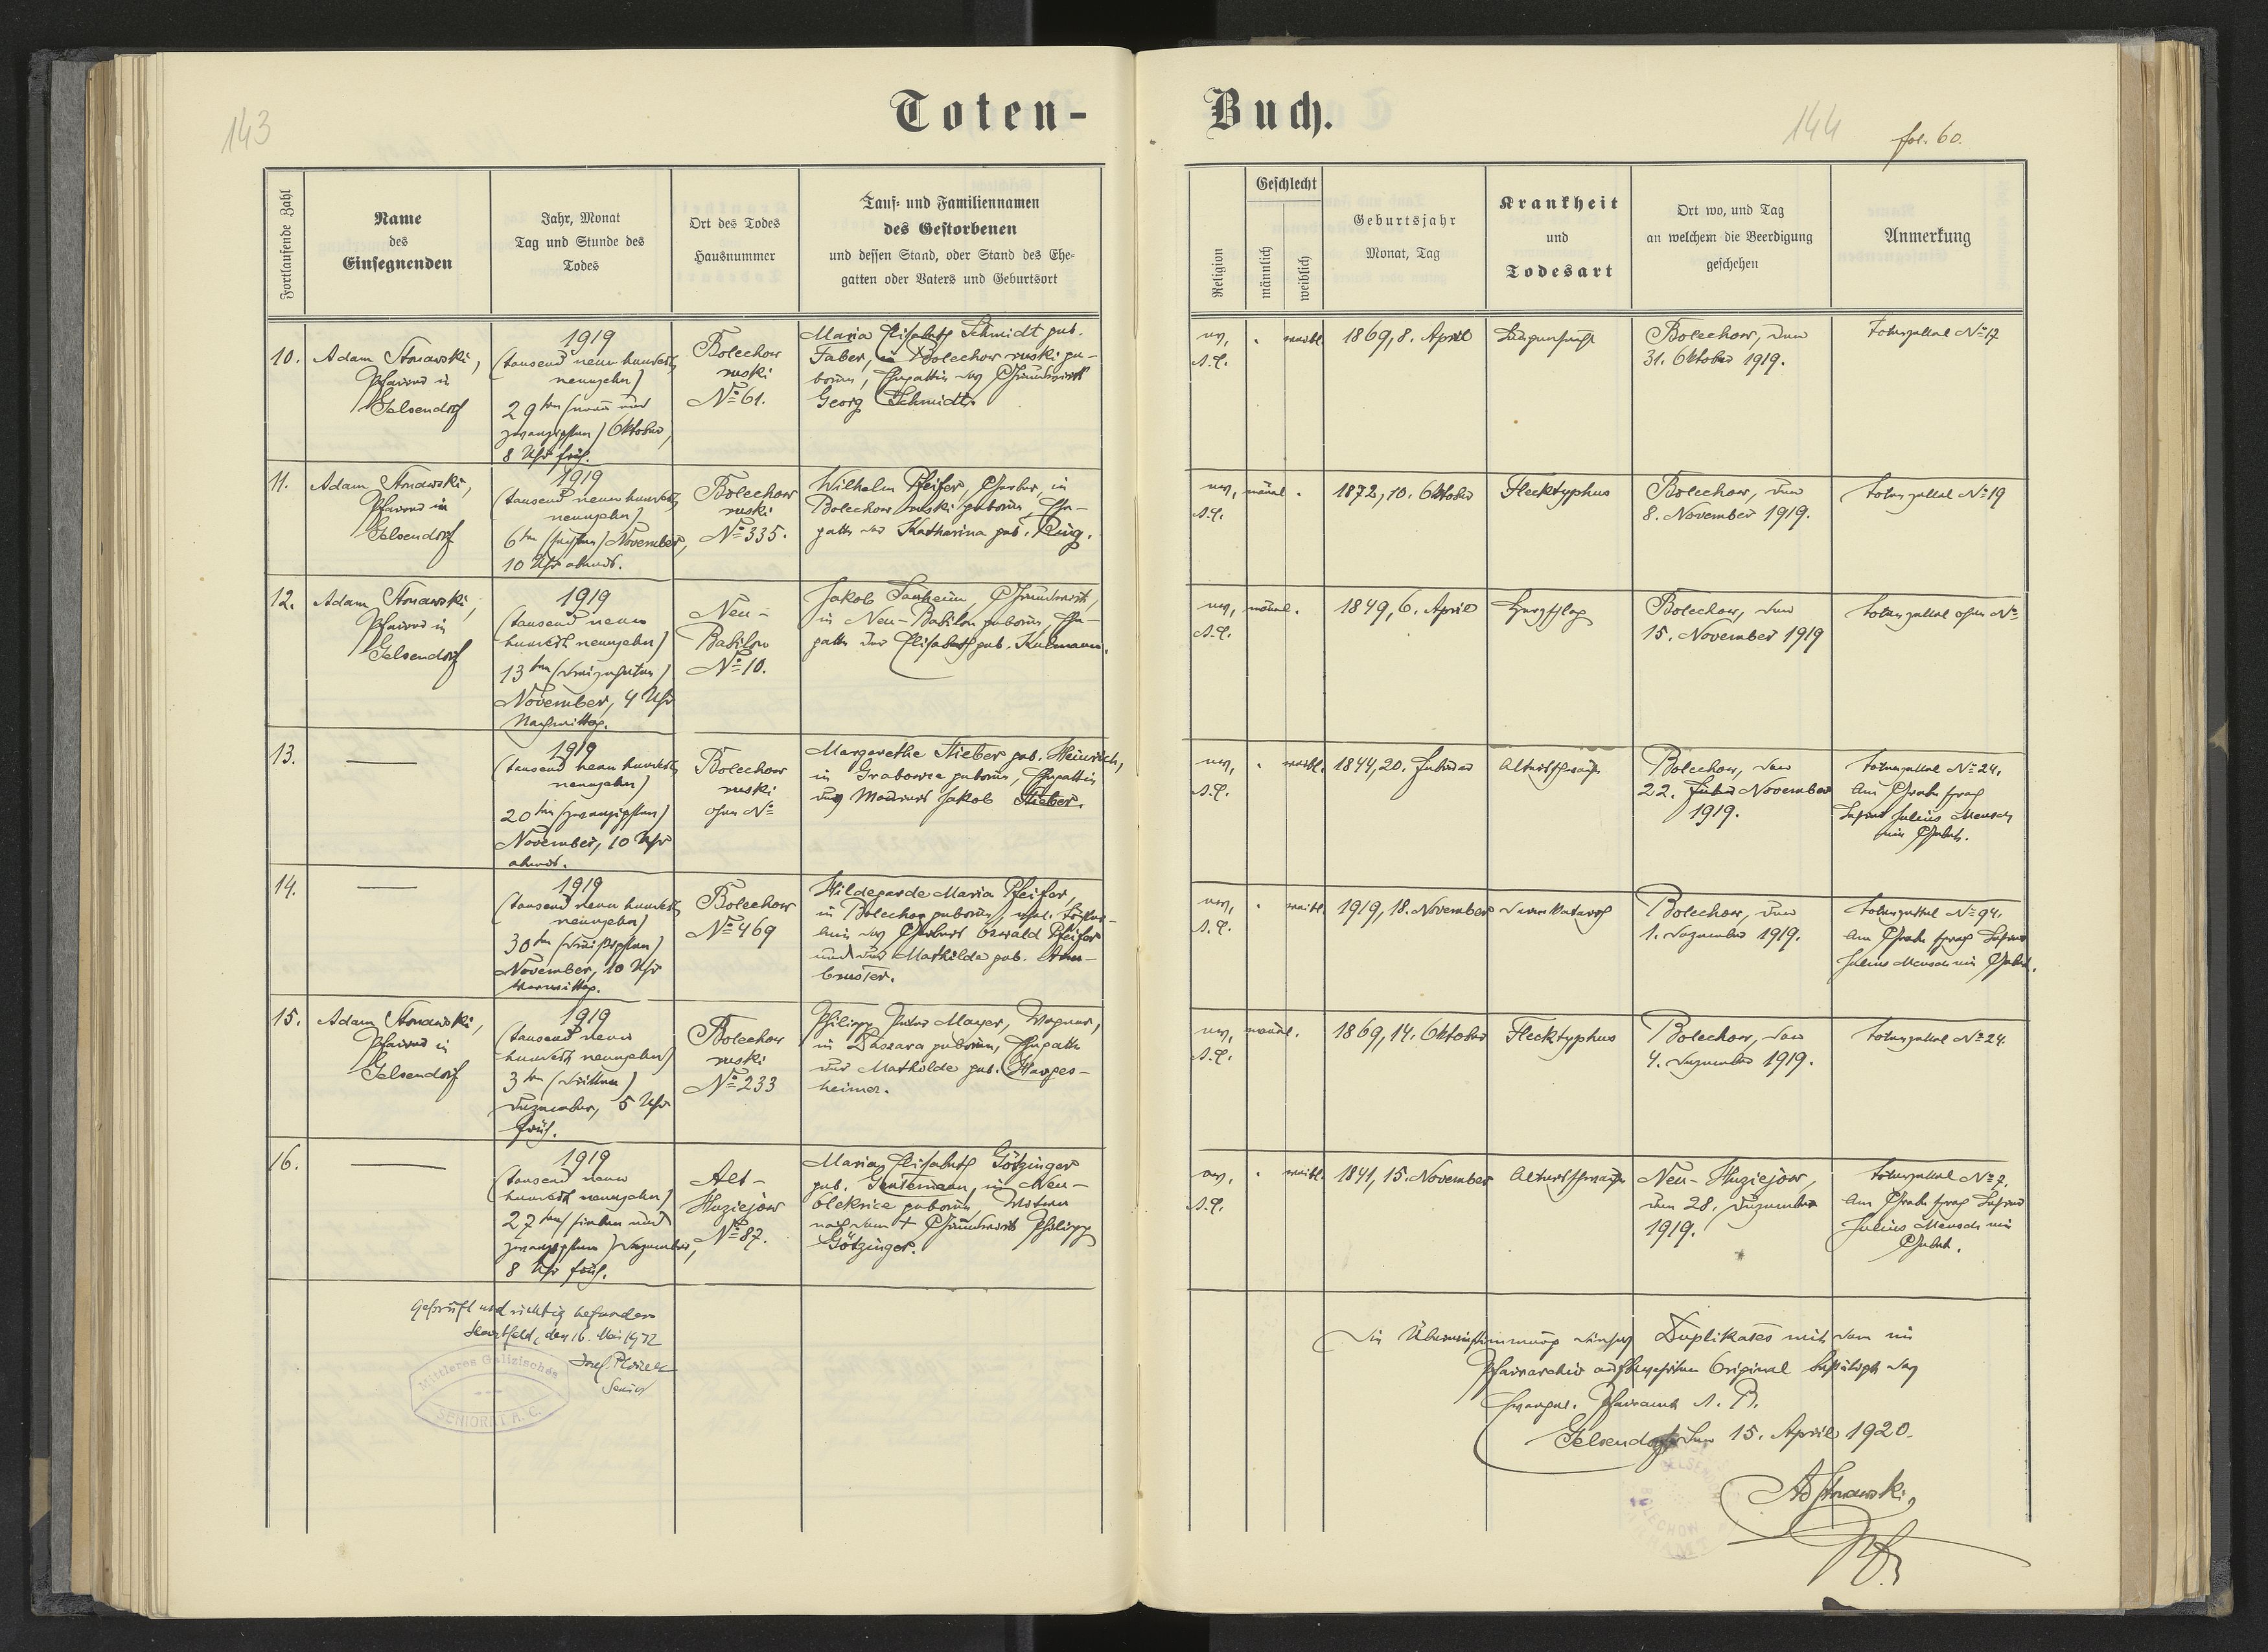 143
Toten-
Fortlaufende Zahl
Name
des
Einsegnenden
Jahr, Monat
Tag und Stunde des
Todes
Ort des Todes
Hausnummer
Tauf- und Familiennamen
des Gestorbenen
und dessen Stand, oder Stand des Ehe-
gatten oder Vaters und Geburtsort
10.
Adam Stonawski,
Pfarrer in
Gelsendorf
1919
(tausend neun hundert
neunzehn)
29ten (neun und
zwanzigsten) Oktober,
8 Uhr früh.
Bolechow
ruski
No 61.
Maria Elisabeth Schmidt geb.
Faber, in Bolechow ruski ge-
boren, Ehegattin des Grundwirt
Georg Schmidt.
11.
Adam Stonawski,
Pfarrer in
Gelsendorf
1919
(tausend neun hundert
neunzehn)
6ten (sechsten) November,
10 Uhr abends.
Bolechow
ruski
No 335.
Wilhelm Pfeifer, Gerber in
Bolechow ruski geboren, Ehe-
gatte der Katharina geb. Ring.
12.
Adam Stonawski,
Pfarrer in
Gelsendorf
1919
(tausend neun
hundert neunzehn)
13ten (dreizehnten)
November, 4 Uhr
Nachmittag.
Neu-
Babilon
No 10.
Jakob Grundwirt,
in Neu-Babilon geboren, Ehe-
gatte der Elisabeth geb. Kulmann.
13.
1919
(tausend neun hundert
neunzehn)
20ten (zwanzigsten)
November, 10 Uhr
abends.
Bolechow
ruski
ohne No
Margarethe Stieber geb. Heinrich,
in Grabowce geboren, Ehegattin
des Maurers Jakob Stieber.
14.
1919
(tausend neun hundert
neunzehn)
30ten (dreißigsten)
November, 10 Uhr
Vormittag.
Bolechow
No 469
Hildegarde Maria Pfeifer,
in Bolechow geboren, ehel. Töchter-
lein des Gerbers Oswald Pfeifer
und der Mathilde geb. Arm-
bruster.
15.
Adam Stonawski,
Pfarrer in
Gelsendorf
1919
(tausend neun
hundert neunzehn)
3ten (dritten)
Dezember, 5 Uhr
früh.
Bolechow
ruski
No 233
Philipp Peter Mayer, Wagner,
in geboren, Ehegatte
der Mathilde geb. Harges-
heimer.
16.
1919
(tausend neun
hundert neunzehn)
27ten (sieben und
zwanzigsten) Dezember,
8 Uhr früh.
Alt-
Huziejow
No 87.
Maria Elisabeth Götzinger
geb. in Neu-
Oleksice geboren, Witwe
nach dem + Grundwirt Philipp
Götzinger.
Geprüft und richtig befunden
den 16. Mai 1922
Josef
Senior
Mittleres Galizisches
SENIORAT A. C.
Buch.
144
fol. 60.
Religion
Geschlecht
männlich
weiblich
Geburtsjahr
Monat, Tag
Krankheit
und
Todesart
Ort wo, und Tag
an welchem die Beerdigung
geschehen
Anmerkung
ev.
A.C.
weibl.
1869, 8. April
Lungensucht
Bolechow, den
31. Oktober 1919.
Totenzettel No 17
ev.
A.C.
männl.
1872, 10. Oktober
Flecktyphus
Bolechow, den
8. November 1919.
Totenzettel No 19
ev.
A.C.
männl.
1849, 6. April
Herzschlag
Bolechow, den
15. November 1919
Totenzettel ohne No
ev.
A.C.
weibl.
1844, 20. Februar
Altersschwäche
Bolechow, den
22. November
1919.
Totenzettel No 24.
Am Grabe sprach
Lehrer Julius Mensch
ein Gebet.
ev.
A.C.
weibl.
1919, 18. November
Darmkatarrh
Bolechow, den
1. Dezember 1919.
Totenzettel No 94.
Am Grabe sprach Lehrer
Julius Mensch ein Gebet.
ev.
A.C.
männl.
1869, 14. Oktober
Flecktyphus
Bolechow, den
4. Dezember 1919.
Totenzettel No 24.
ev.
A.C.
weibl.
1841, 15. November
Altersschwäche
Neu-Huziejow,
den 28. Dezember
1919.
Totenzettel No 7.
Am Grabe sprach Lehrer
Julius Mensch ein
Gebet.
Die Übereinstimmung dieses Duplikates mit dem im
Pfarrarchiv aufbewahrten Original bestätigt das
Evangel. Pfarramt A. B.
Gelsendorf den 15. April 1920.
Ad Stonawski,
Pfr.